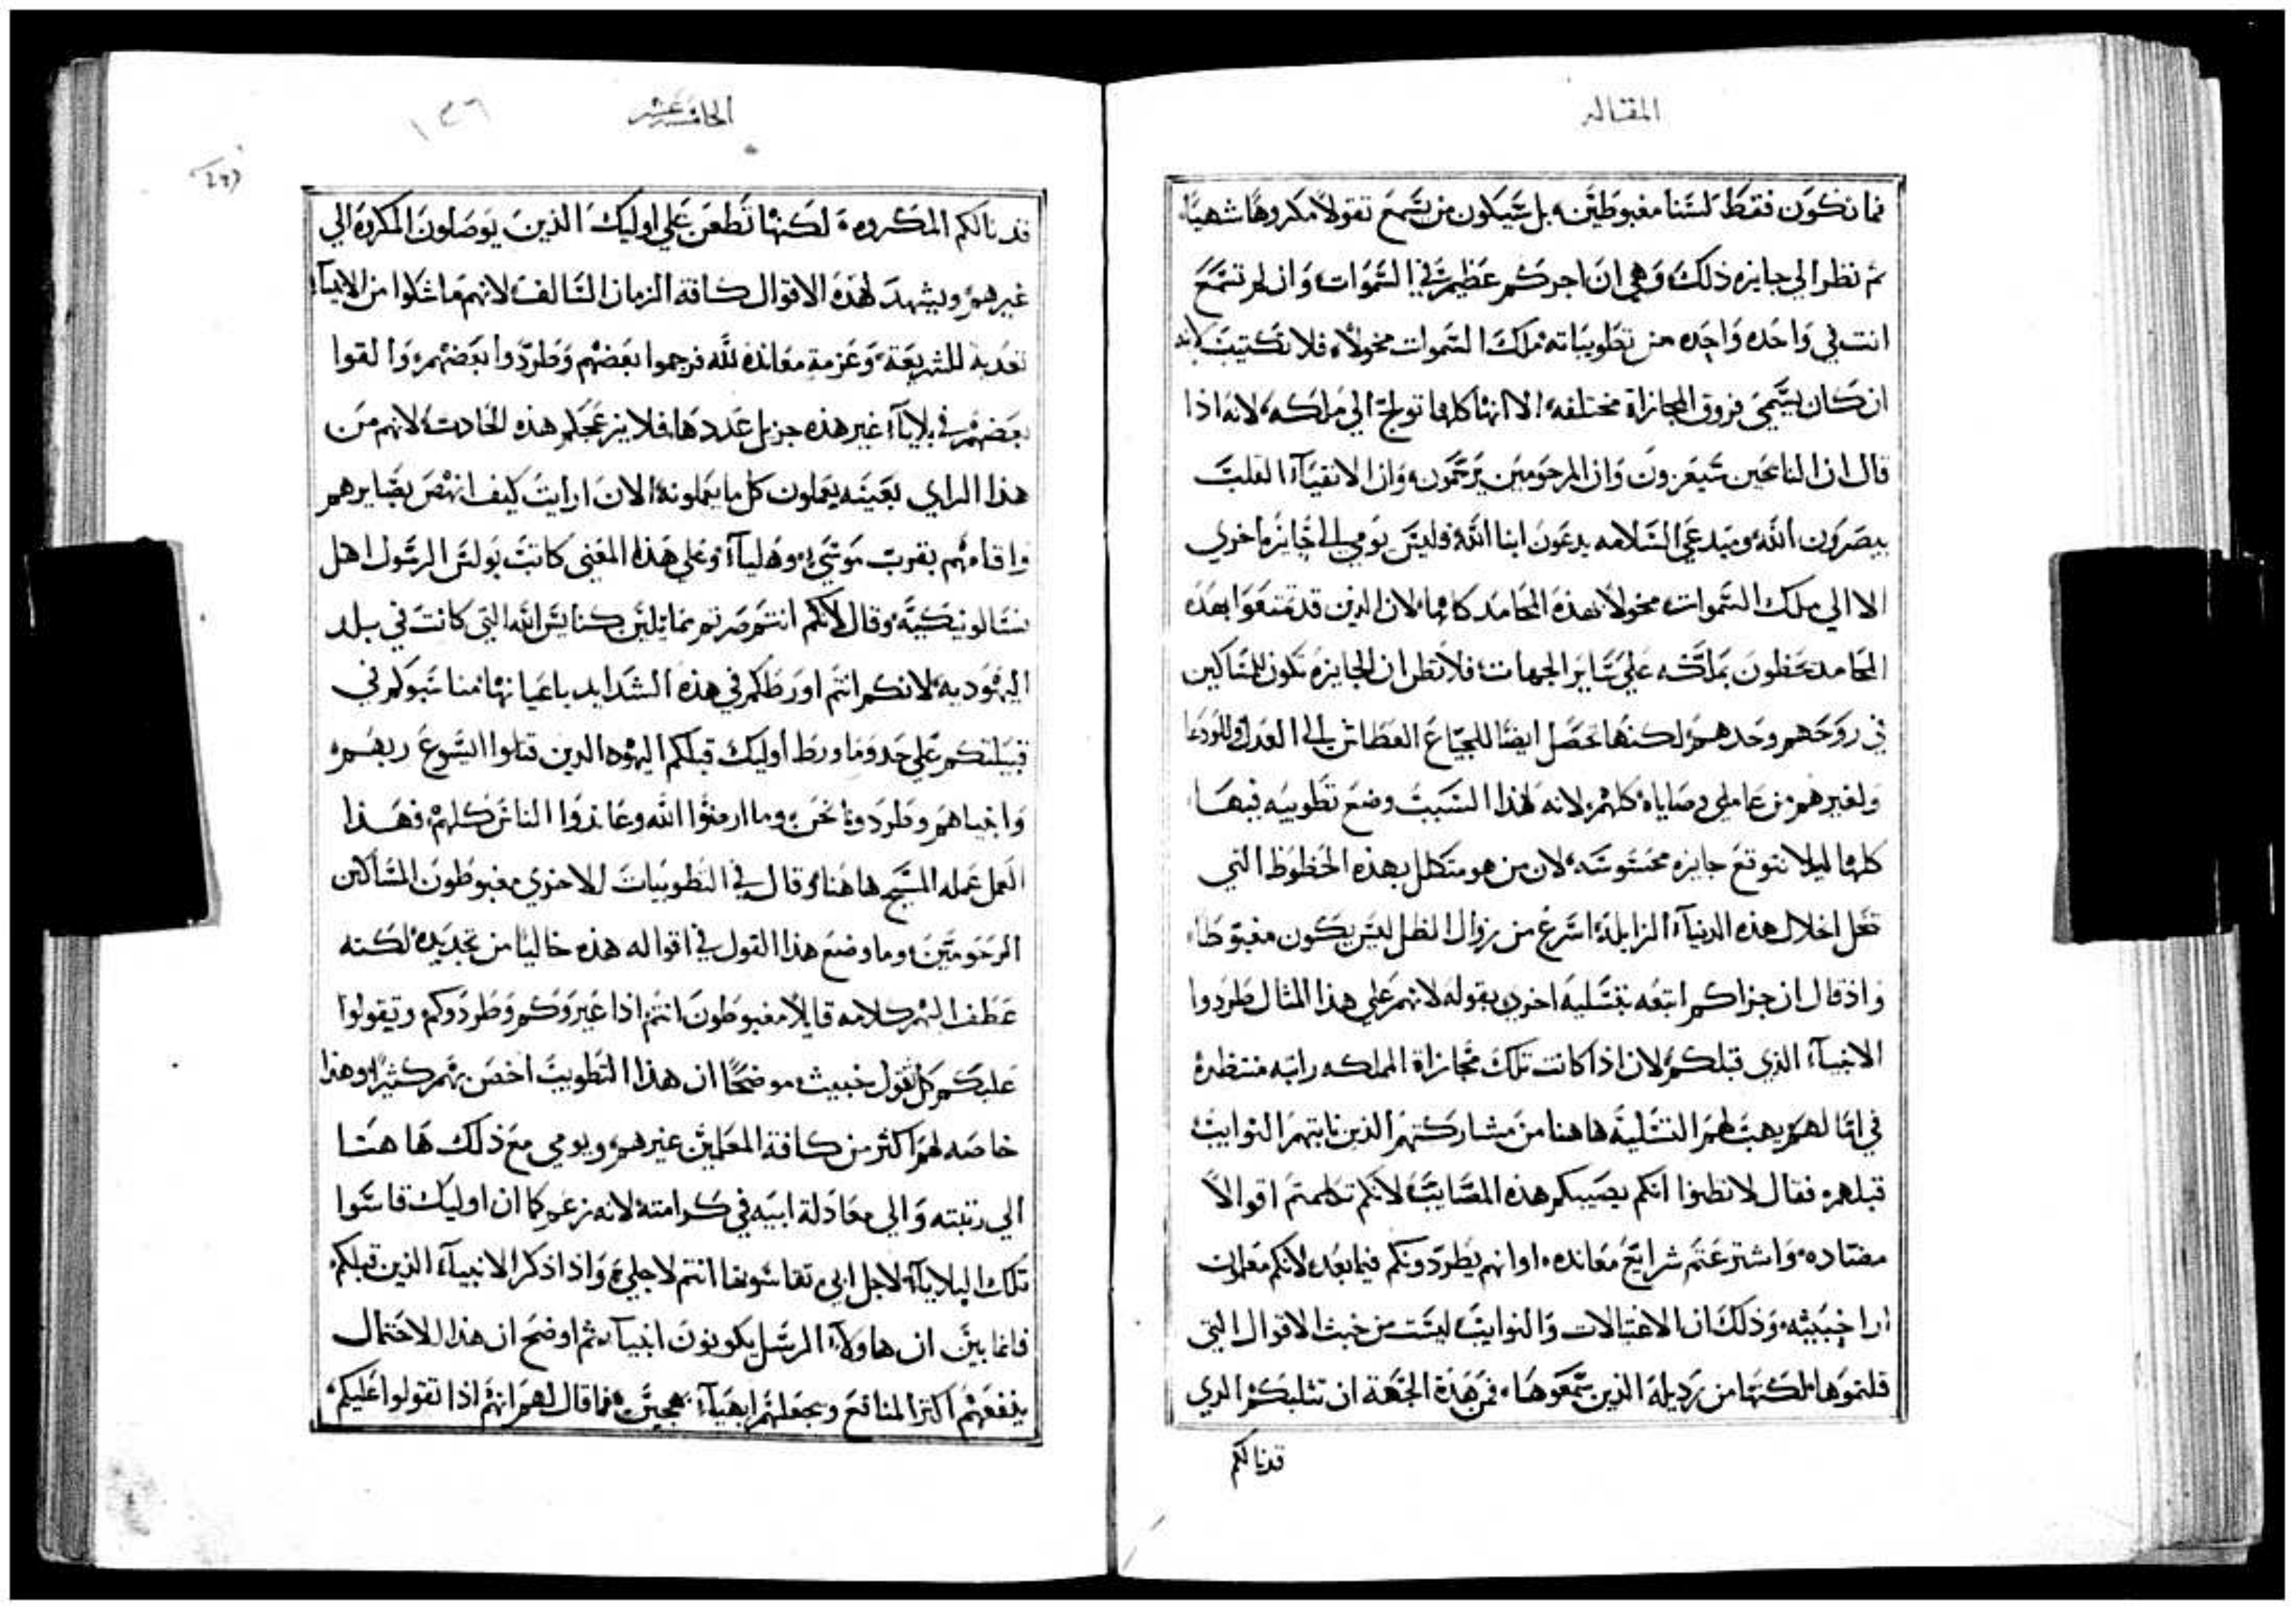 المقاله
فما نكون فقط لسنا مغبوطين، بل سيكون من يسمع تقولاً مكروهًا شهيًا،
ثم نظر الي جايزه ذلك، وهي ان اجركم عظيم في السموات، وان لم تسمع
انت في واحده واحده من تطويباته ملك السموات مخولاً، فلا تكتيب لانه
ان كان يسمي فروق المجازاة مختلفه، الا انها كلها تولج الي ملكه، لانه اذا
قال ان النايحين سيعزون وان المرحومين يرحمون، وان الانقيآء القلب
يبصرون الله، ومبدعي السلامه يدعون ابنا الله، فليس يومي الي جايزه اخري
الا الي ملك السموات، مخولاً بهذه المحامد كلها، لان الذين قد تمتعوا بهذه
المحامد يحظون بملكه علي ساير الجهات، فلا تظن ان الجايزه تكون للمساكين
في روحهم وحدهم، لكنها تحصل ايضًا للجياع العطاش الي العدل وللودعا
ولغيرهم من عاملي وصاياه كلهم، لانه لهذا السبب وضع تطويبه فيها
كلها ليلا نتوقع جايزه محسوسه، لان من هو متكلل بهذه الحظوظ التي
تنحل اخلال هذه الدنيآء الزايلة، اسرع من زوال الظل ليس يكون مغبوطا،
واذ قال ان جزاكم اتبعه بتسليه اخري بقوله لانهم علي هذا المثال طردوا
الانبيآء الذي قبلكم، لان اذا كانت تلك مجازاة المملكه راتبه منتظرة
في امالهم يهب لهم التسلية هاهنا من مشاركتهم الذين نابتهم النوايب
قبلهم، فقال لا تظنوا انكم يصيبكم هذه المصايب، لانكم تكلمتم اقوالاً
مضاده، واشترعتم شرايع معانده، او انهم يطردونكم فيما بعد لانكم معلمون
ارا خبيثه، وذلك ان الاغتيالات والنوايب ليست من خبث الاقوال التي
قلتموها، لكنها من رديلة الذين سمعوها، فمن هذة الجهة ان تثلبكم الذي
قد نالكم
الخامسة عشر
١٢٦
قد نالكم المكروه، لكنها تطعن علي اوليك الذين يوصلون المكروه الي
غيرهم، ويشهد لهذه الاقوال كافة الزمان السالف، لانهم ما شكوا من الانبيآء
تعديه للشريعة، وعزمة معانده لله فرجموا بعضهم وطردوا بعضهم، والقوا
بعضهم في بلايآء غير هذه جزيل عددها، فلا يزعجكم هذه الحادث، لانهم من
هذا الراي بعينه يعملون كل ما يعملونه الان، ارايت كيف انهض بصايرهم
واقامهم بقرب موسي، وهلياء، وعلي هذا المعني كاتب بولس الرسول اهل
تسالونيكية، وقال لانكم انتم صرتم مماثلين كنايس الله التي كانت في بلد
اليهوديه، لانكم انتم اورطكم في هذه الشدايد باعيانها مناسبوكم في
قبيلتكم علي حد وما ورط اوليك قبلكم اليهود الدين قتلوا اليسوع ربهم،
وانبياهم وطردونا نحن، وما ارضوا الله وعاندوا الناس كلهم، فهذا
العمل عمله المسيح هاهنا وقال في التطويبات الاخري مغبوطون المساكين
الرحومين، وما وضع هذا القول في اقواله هذه خاليًا من تحديده، لكنه
عطف اليهم كلامه قايلاً مغبوطون انتم اذا عيروكم وطردوكم وتقولوا
عليكم كل تقول خبيث، موضحًا ان هذا التطويب اخص بهم كثيرًا، وهذا
خاصه لهم اكثر من كافة المعلمين غيرهم، ويومي مع ذلك ها هنا
الي رتبته والي معادلة ابيه في كرامته، لانه زعم كما ان اوليك قاسوا
تلك البلايآء لاجل ابي، تقاسونها انتم لاجلي، واذا ذكر الانبيآء الذين قبلكم،
فانما بين ان هاولآء الرسل يكونون انبيآء، ثم اوضح ان هذا الاحتمال
ينفعهم اكثر المنافع ويجعلهم ابهيآء بهجين، فما قال لهم انهم اذا تقولوا عليكم،